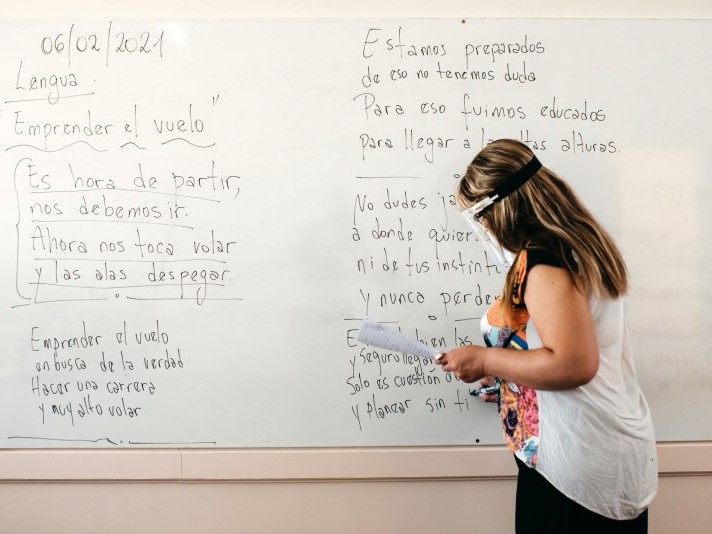 06/02/2021
Lengua.
"Emprender el vuelo"
Es hora de partir,
nos debemos ir.
Ahora nos toca volar
y las alas despegar.
Emprender el vuelo
en busca de la verdad
Hacer una carrera
y muy alto volar
Estamos preparados
de eso no tenemos duda
Para eso fuimos educados
para llegar a altas alturas.
No dudes
a donde
ni de tus
y nunca
bien
y seguro
Solo es cuestión
y planear sin